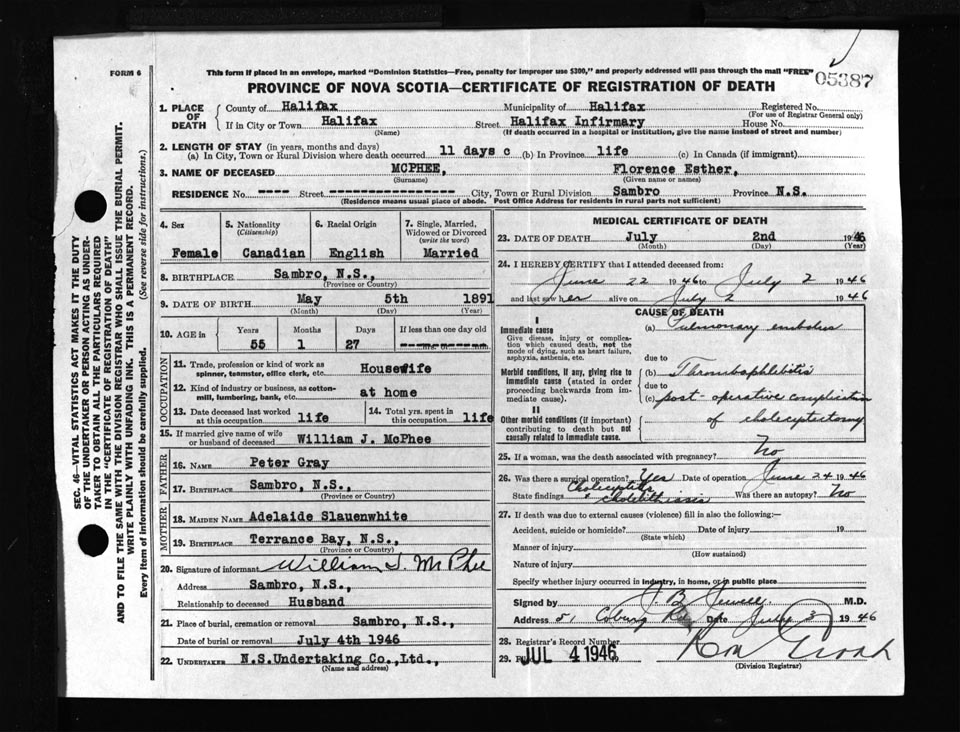 FORM 6
This form if placed in an envelope, marked "Dominion Statistics—Free, penalty for improper use $300," and properly addressed will pass through the mail "FREE"
05387
PROVINCE OF NOVA SCOTIA—CERTIFICATE OF REGISTRATION OF DEATH
1. PLACE OF DEATH County of Halifax Municipality of Halifax Registered No.
(For use of Registrar General only)
If in City or Town Halifax Street Halifax Infirmary House No.
(Name) (If death occurred in a hospital or institution, give the name instead of street and number)
2. LENGTH OF STAY (in years, months and days)
(a) In City, Town or Rural Division where death occurred 11 days c (b) In Province life (c) In Canada (if immigrant)
3. NAME OF DECEASED MCPHEE, Florence Esther,
(Surname) (Given name or names)
RESIDENCE No. ---- Street ------------------ City, Town or Rural Division Sambro Province N.S.
(Residence means usual place of abode. Post Office Address for residents in rural parts not sufficient)
SEC. 46—VITAL STATISTICS ACT MAKES IT THE DUTY
OF THE UNDERTAKER OR PERSON ACTING AS UNDER-
TAKER TO OBTAIN ALL THE PARTICULARS REQUIRED
IN THE "CERTIFICATE OF REGISTRATION OF DEATH"
AND TO FILE THE SAME WITH THE DIVISION REGISTRAR WHO SHALL ISSUE THE BURIAL PERMIT.
WRITE PLAINLY WITH UNFADING INK. THIS IS A PERMANENT RECORD.
Every item of information should be carefully supplied. (See reverse side for instructions.)
4. Sex
Female
5. Nationality
(Citizenship)
Canadian
6. Racial Origin
English
7. Single, Married,
Widowed or Divorced
(write the word)
Married
8. BIRTHPLACE Sambro, N.S.,
(Province or Country)
9. DATE OF BIRTH May 5th 1891
(Month) (Day) (Year)
10. AGE in Years Months Days If less than one day old
55 1 27 hrs. or min.
OCCUPATION
11. Trade, profession or kind of work as
spinner, teamster, office clerk, etc. Housewife
12. Kind of industry or business, as cotton-
mill, lumbering, bank, etc. at home
13. Date deceased last worked
at this occupation life
14. Total yrs. spent in
this occupation life
15. If married give name of wife
or husband of deceased William J. McPhee
FATHER
16. NAME Peter Gray
17. BIRTHPLACE Sambro, N.S.,
(Province or Country)
MOTHER
18. MAIDEN NAME Adelaide Slauenwhite
19. BIRTHPLACE Terrance Bay, N.S.,
(Province or Country)
20. Signature of informant William J. McPhee
Address Sambro, N.S.,
Relationship to deceased Husband
21. Place of burial, cremation or removal Sambro, N.S.,
Date of burial or removal July 4th 1946
22. UNDERTAKER N.S.Undertaking Co.,Ltd.,
(Name and address)
MEDICAL CERTIFICATE OF DEATH
23. DATE OF DEATH July 2nd 1946
(Month) (Day) (Year)
24. I HEREBY CERTIFY that I attended deceased from:
June 22 1946 to July 2 1946
and last saw her alive on July 2 1946
CAUSE OF DEATH
I
Immediate cause
Give disease, injury or complica-
tion which caused death, not the
mode of dying, such as heart failure,
asphyxia, asthenia, etc.
(a) Pulmonary embolus
due to
Morbid conditions, if any, giving rise to
immediate cause (stated in order
proceeding backwards from im-
mediate cause).
(b) Thrombophlebitis
due to
(c) post-operative complication
of cholecystectomy
II
Other morbid conditions (if important)
contributing to death but not
causally related to immediate cause.
25. If a woman, was the death associated with pregnancy? No
26. Was there a surgical operation? Yes Date of operation June 24 1946
State findings Cholecystitis
" cholelithiasis Was there an autopsy? No
27. If death was due to external causes (violence) fill in also the following:—
Accident, suicide or homicide? Date of injury 19
(State which)
Manner of injury
(How sustained)
Nature of injury
Specify whether injury occurred in industry, in home, or in public place
Signed by J. B. M.D.
Address 51 Coburg Rd Date July 3 1946
28. Registrar's Record Number
29. JUL 4 1946
(Division Registrar)